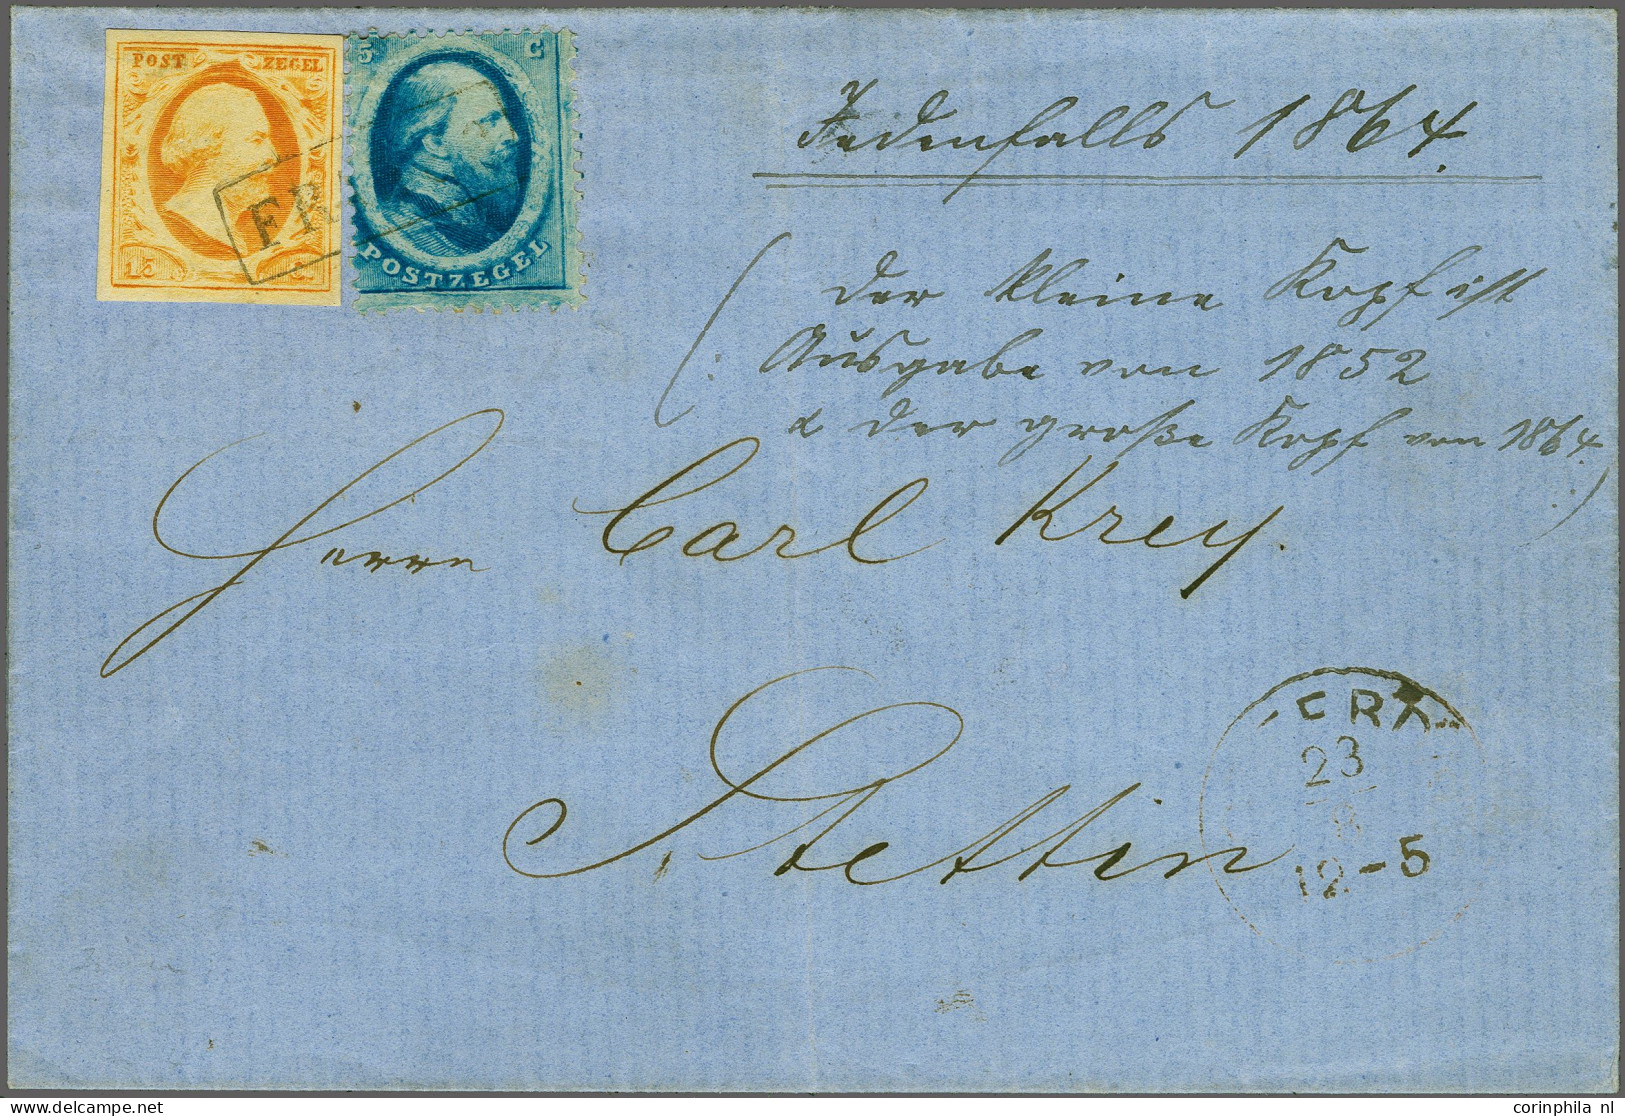 POST ZEGEL
15
5 C
POSTZEGEL
Jedenfalls 1864.
(der kleine Kopf ist
Ausgabe von 1852
& der große Kopf von 1864.)
Herrn Carl Krey.
Stettin
23
12-5
delcampe.net
corinphila nl